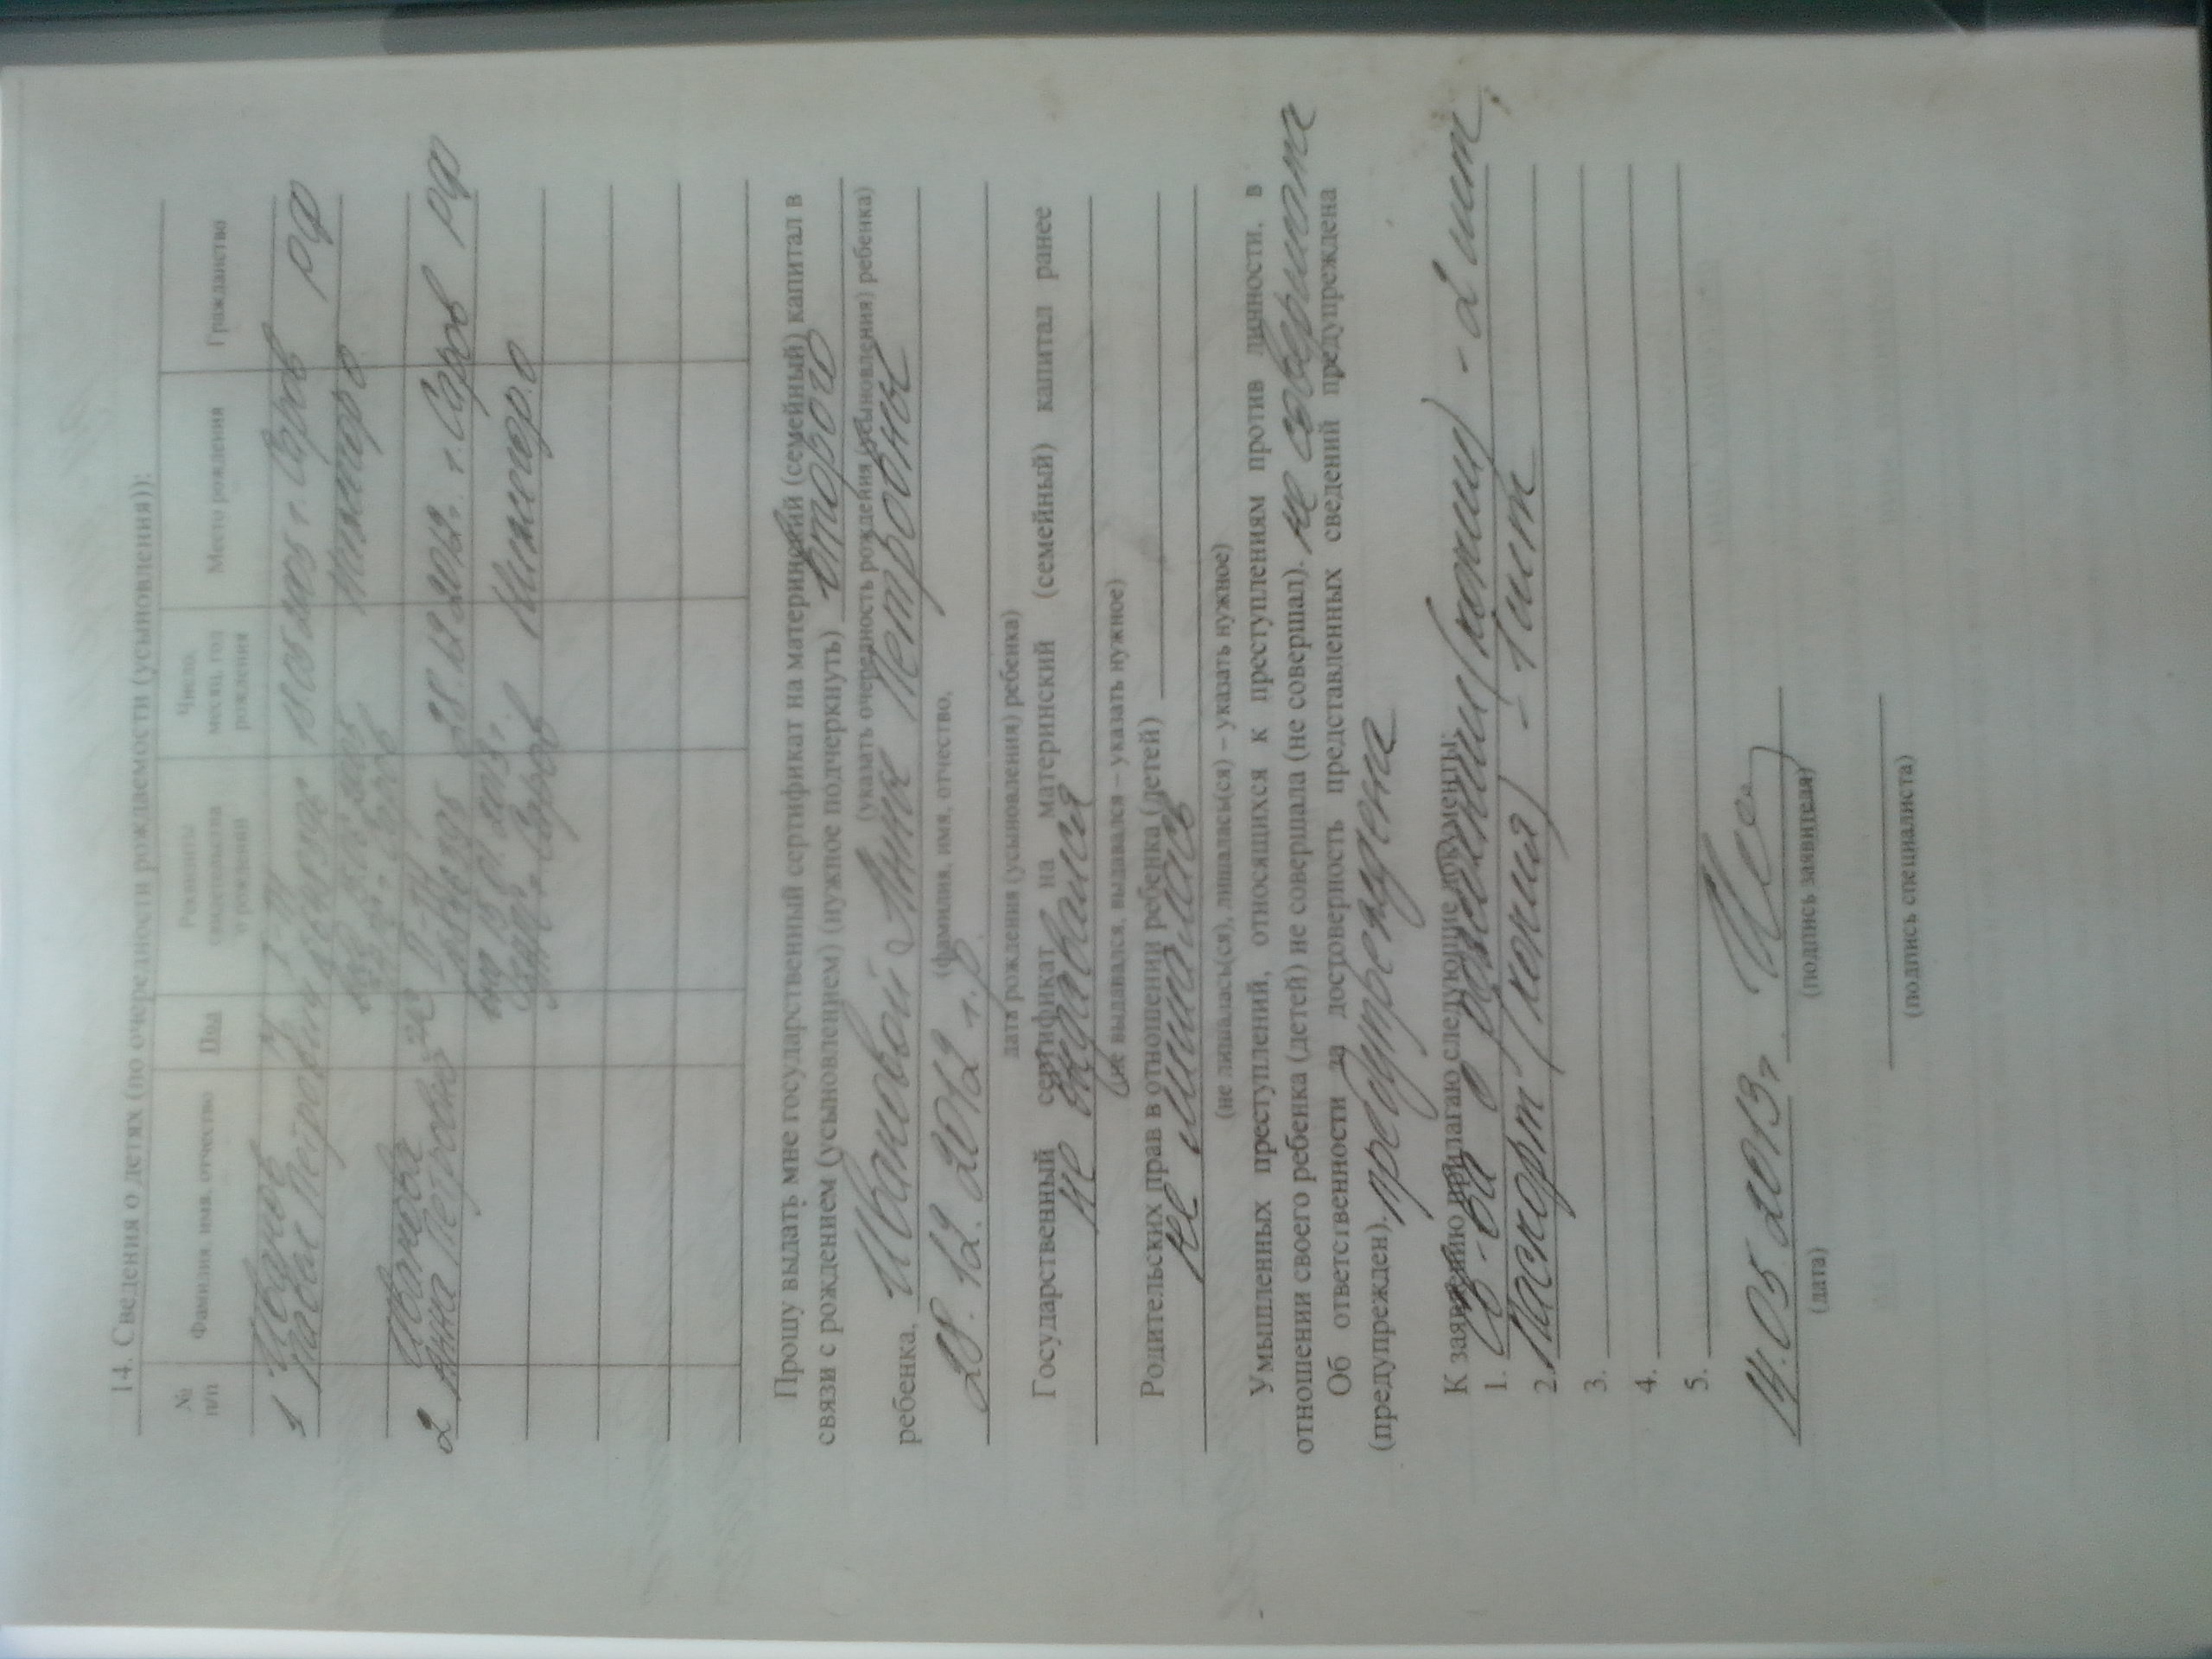 14. Сведения о детях (по очередности рождаемости (усыновления)):
№ п/п Фамилия, имя, отчество Пол Реквизиты свидетельства о рождении Число, месяц, год рождения Место рождения Гражданство
1 Иванов г. Саров РФ
Павел Петрович
2 Иванова 28.12.2012 г. Саров РФ
Анна Петровна
Прошу выдать мне государственный сертификат на материнский (семейный) капитал в
связи с рождением (усыновлением) (нужное подчеркнуть) второго
(указать очередность рождения (усыновления) ребенка)
ребенка, Ивановой Анны Петровны
(фамилия, имя, отчество,
28.12.2012 г.р.
дата рождения (усыновления) ребенка)
Государственный сертификат на материнский (семейный) капитал ранее
не выдавался
(не выдавался, выдавался – указать нужное)
Родительских прав в отношении ребенка (детей)
не лишалась
(не лишалась(ся), лишалась(ся) – указать нужное)
Умышленных преступлений, относящихся к преступлениям против личности, в
отношении своего ребенка (детей) не совершала (не совершал). не совершала
Об ответственности за достоверность представленных сведений предупреждена
(предупрежден). предупреждена
К заявлению прилагаю следующие документы:
1. Св-ва о рождении (копии) - 2 шт,
2. Паспорт (копия) - 1 шт
3.
4.
5.
14.05.2013г.
(дата) (подпись заявителя)
(подпись специалиста)